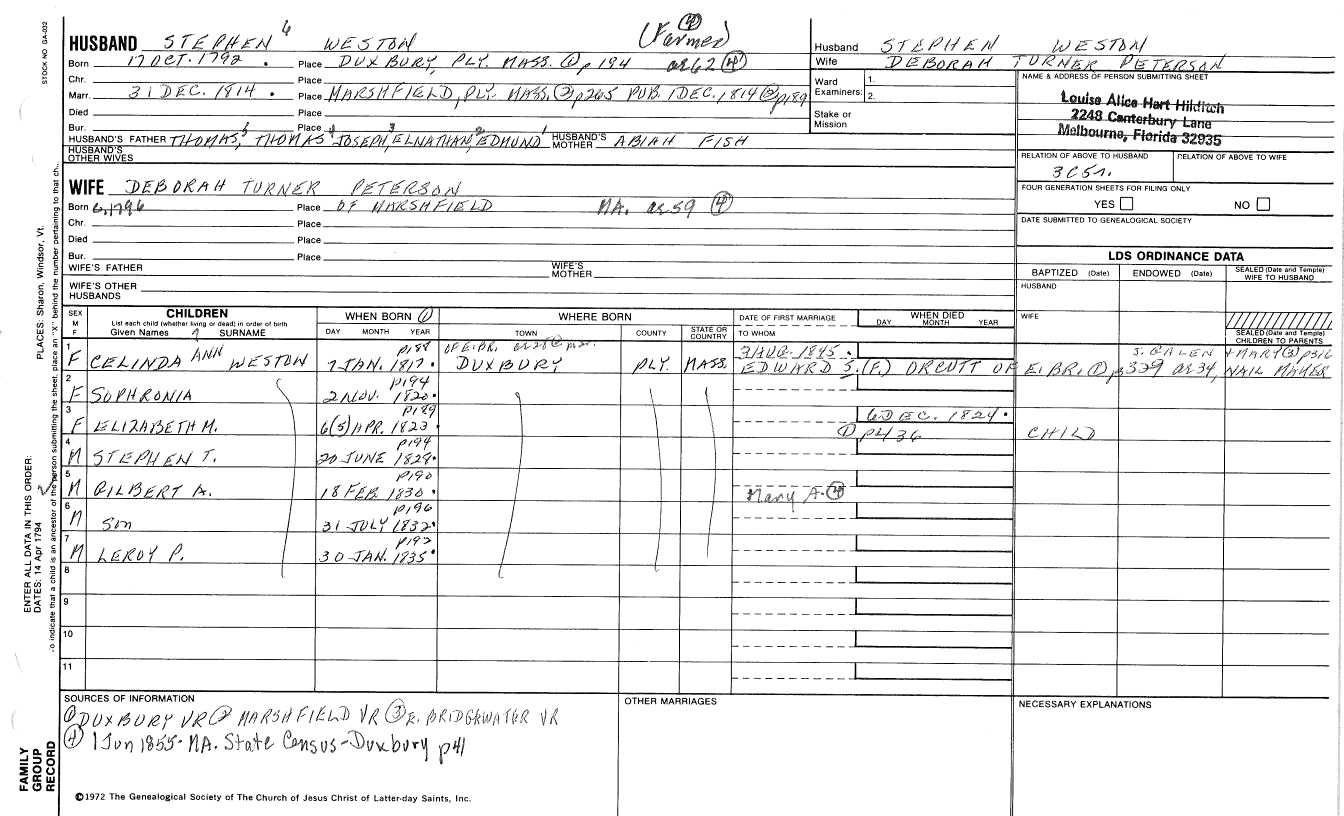 STOCK NO. GA-032
HUSBAND STEPHEN 6 WESTON (Farmer) ④
Born 17 OCT. 1792 . Place DUXBURY, PLY. MASS. ① p194 ae 62 ④
Chr. Place
Marr. 31 DEC. 1814 . Place MARSHFIELD, PLY. MASS. ② p265 PUB. 1 DEC. 1814 ② p189
Died Place
Bur. Place
HUSBAND'S FATHER THOMAS 5, THOMAS 4 JOSEPH 3, ELNATHAN 2, EDMUND 1 HUSBAND'S MOTHER ABIAH FISH
HUSBAND'S OTHER WIVES
WIFE DEBORAH TURNER PETERSON
Born 6,1796 Place OF MARSHFIELD MA. ae 59 ④
Chr. Place
Died Place
Bur. Place
WIFE'S FATHER WIFE'S MOTHER
WIFE'S OTHER HUSBANDS
Husband STEPHEN WESTON
Wife DEBORAH TURNER PETERSON
Ward Examiners: 1. 2.
Stake or Mission
NAME & ADDRESS OF PERSON SUBMITTING SHEET
Louise Alice Hart Hilditch
2248 Canterbury Lane
Melbourne, Florida 32935
RELATION OF ABOVE TO HUSBAND RELATION OF ABOVE TO WIFE
FOUR GENERATION SHEETS FOR FILING ONLY
YES NO
DATE SUBMITTED TO GENEALOGICAL SOCIETY
LDS ORDINANCE DATA
BAPTIZED (Date) ENDOWED (Date) SEALED (Date and Temple) WIFE TO HUSBAND
HUSBAND
WIFE
SEALED (Date and Temple) CHILDREN TO PARENTS
SEX M F CHILDREN WHEN BORN ① WHERE BORN DATE OF FIRST MARRIAGE WHEN DIED
List each child (whether living or dead) in order of birth
Given Names SURNAME DAY MONTH YEAR TOWN COUNTY STATE OR COUNTRY TO WHOM DAY MONTH YEAR
p188 OF E. BR. 3 AUG. 1845 . J. GALEN + MARY ③ p316
1 F CELINDA ANN WESTON 7 JAN. 1817. DUXBURY PLY. MASS. EDWARD S. (F.) ORCUTT OF E. BR. ① p329 ae 34, NAIL MAKER
p194
2 F SOPHRONIA 2 NOV. 1820.
p189 6 DEC. 1824.
3 F ELIZABETH M. 6(5) APR. 1823 ① p436 CHILD
p194
4 M STEPHEN T. 20 JUNE 1829.
p190
5 M GILBERT A. 18 FEB 1830. Mary A. ④
p196
6 M Son 31 JULY 1832.
p192
7 M LEROY P. 30 JAN. 1835.
8
9
10
11
SOURCES OF INFORMATION
① DUXBURY VR ② MARSHFIELD VR ③ E. BRIDGEWATER VR
④ 1 Jun 1855 - MA. State Census - Duxbury p41
OTHER MARRIAGES
NECESSARY EXPLANATIONS
©1972 The Genealogical Society of The Church of Jesus Christ of Latter-day Saints, Inc.
FAMILY GROUP RECORD
ENTER ALL DATA IN THIS ORDER:
DATES: 14 Apr 1794
PLACES: Sharon, Windsor, Vt.
o indicate that a child is an ancestor of the person submitting the sheet, place an "X" behind the number pertaining to that ch..